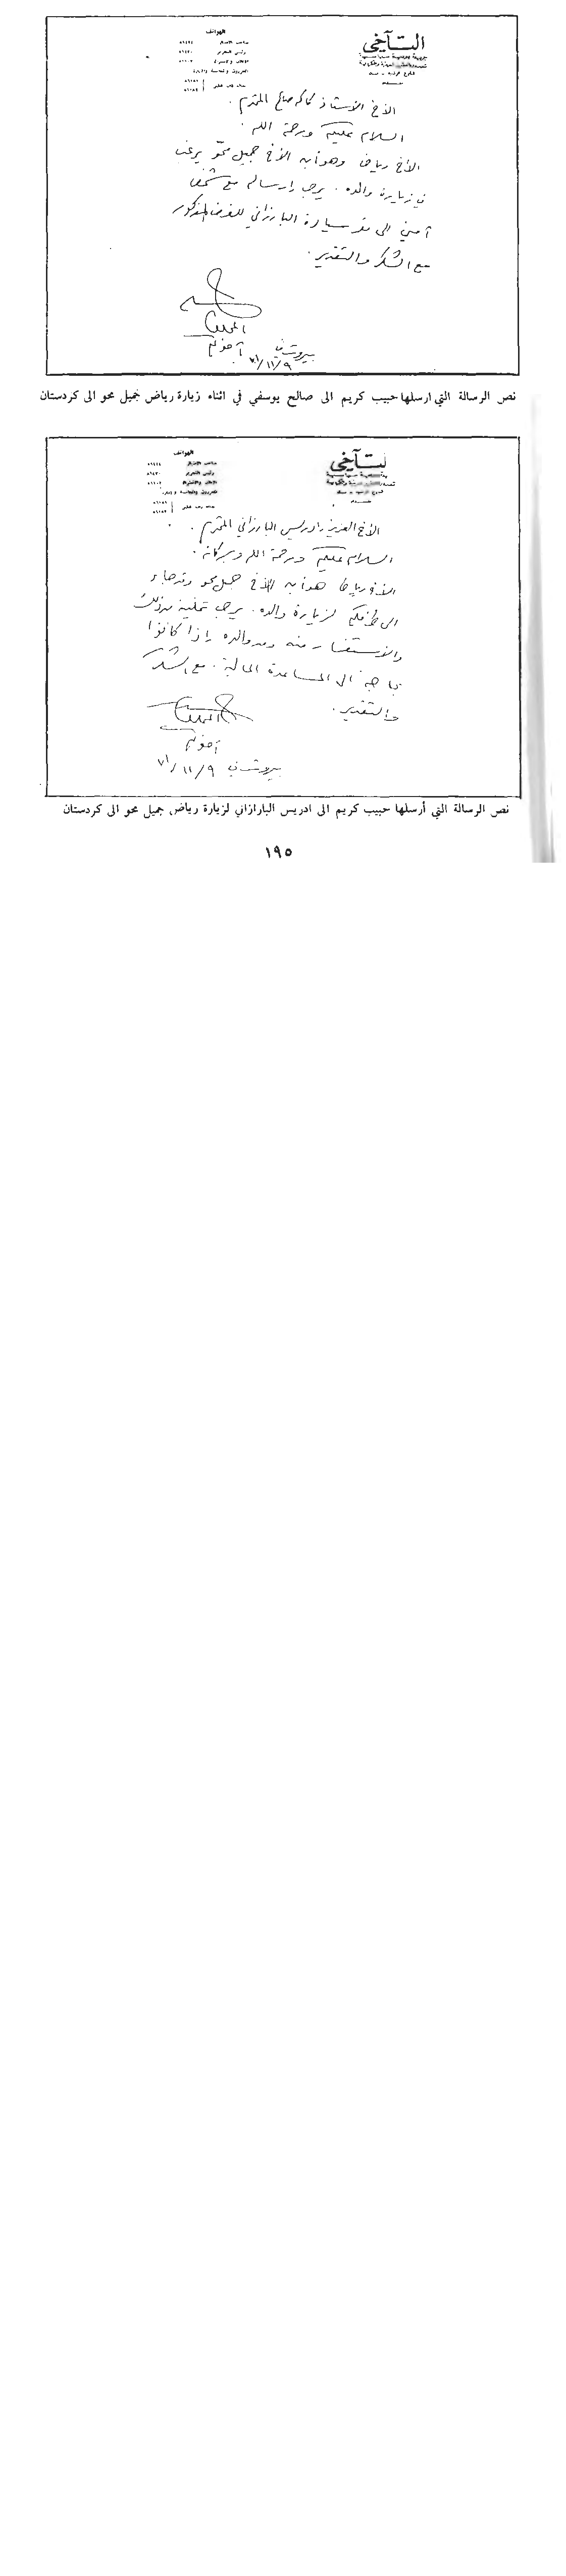 التآخي
الهواتف
صاحب الامتياز
رئيس التحرير
الأخ الأستاذ كاكه صالح المحترم .
السلام عليكم ورحمة الله .
الأخ رياض وهو ابن الأخ جميل محو يرغب
في زيارة والده . يرجى ارساله مع شخص
أمين الى مقر سيادة البارزاني للغرض المذكور
مع الشكر والتقدير .
المخلص
أخوكم
بيروت في
٧١/١١/٩
نص الرسالة التي ارسلها حبيب كريم الى صالح يوسفي في اثناء زيارة رياض جميل محو الى كردستان
لتآخي
الهواتف
صاحب الامتياز
رئيس التحرير
الأخ العزيز ادريس البارزاني المحترم .
السلام عليكم ورحمة الله وبركاته .
الأخ رياض هو ابن الأخ جميل محو وقد جاء
الى طرفكم لزيارة والده . يرجى تمكينه من ذلك
والاستفسار منه ومن والده اذا كانوا
بحاجة الى المساعدة المالية . مع الشكر
والتقدير .
المخلص
أخوكم
بيروت في ٧١/١١/٩
نص الرسالة التي أرسلها حبيب كريم الى ادريس البارازاني لزيارة رياض جميل محو الى كردستان
١٩٥